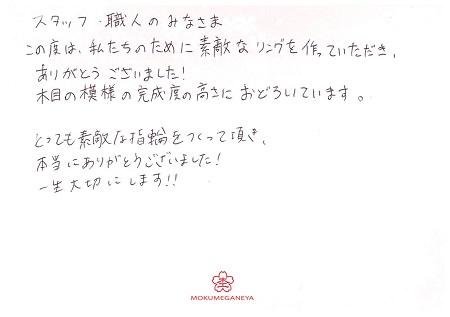 スタッフ・職人のみなさま
この度は、私たちのために素敵なリングを作っていただき、
ありがとうございました!
木目の模様の完成度の高さにおどろいています。
とっても素敵な指輪をつくって頂き、
本当にありがとうございました!
一生大切にします!!
MOKUMEGANEYA